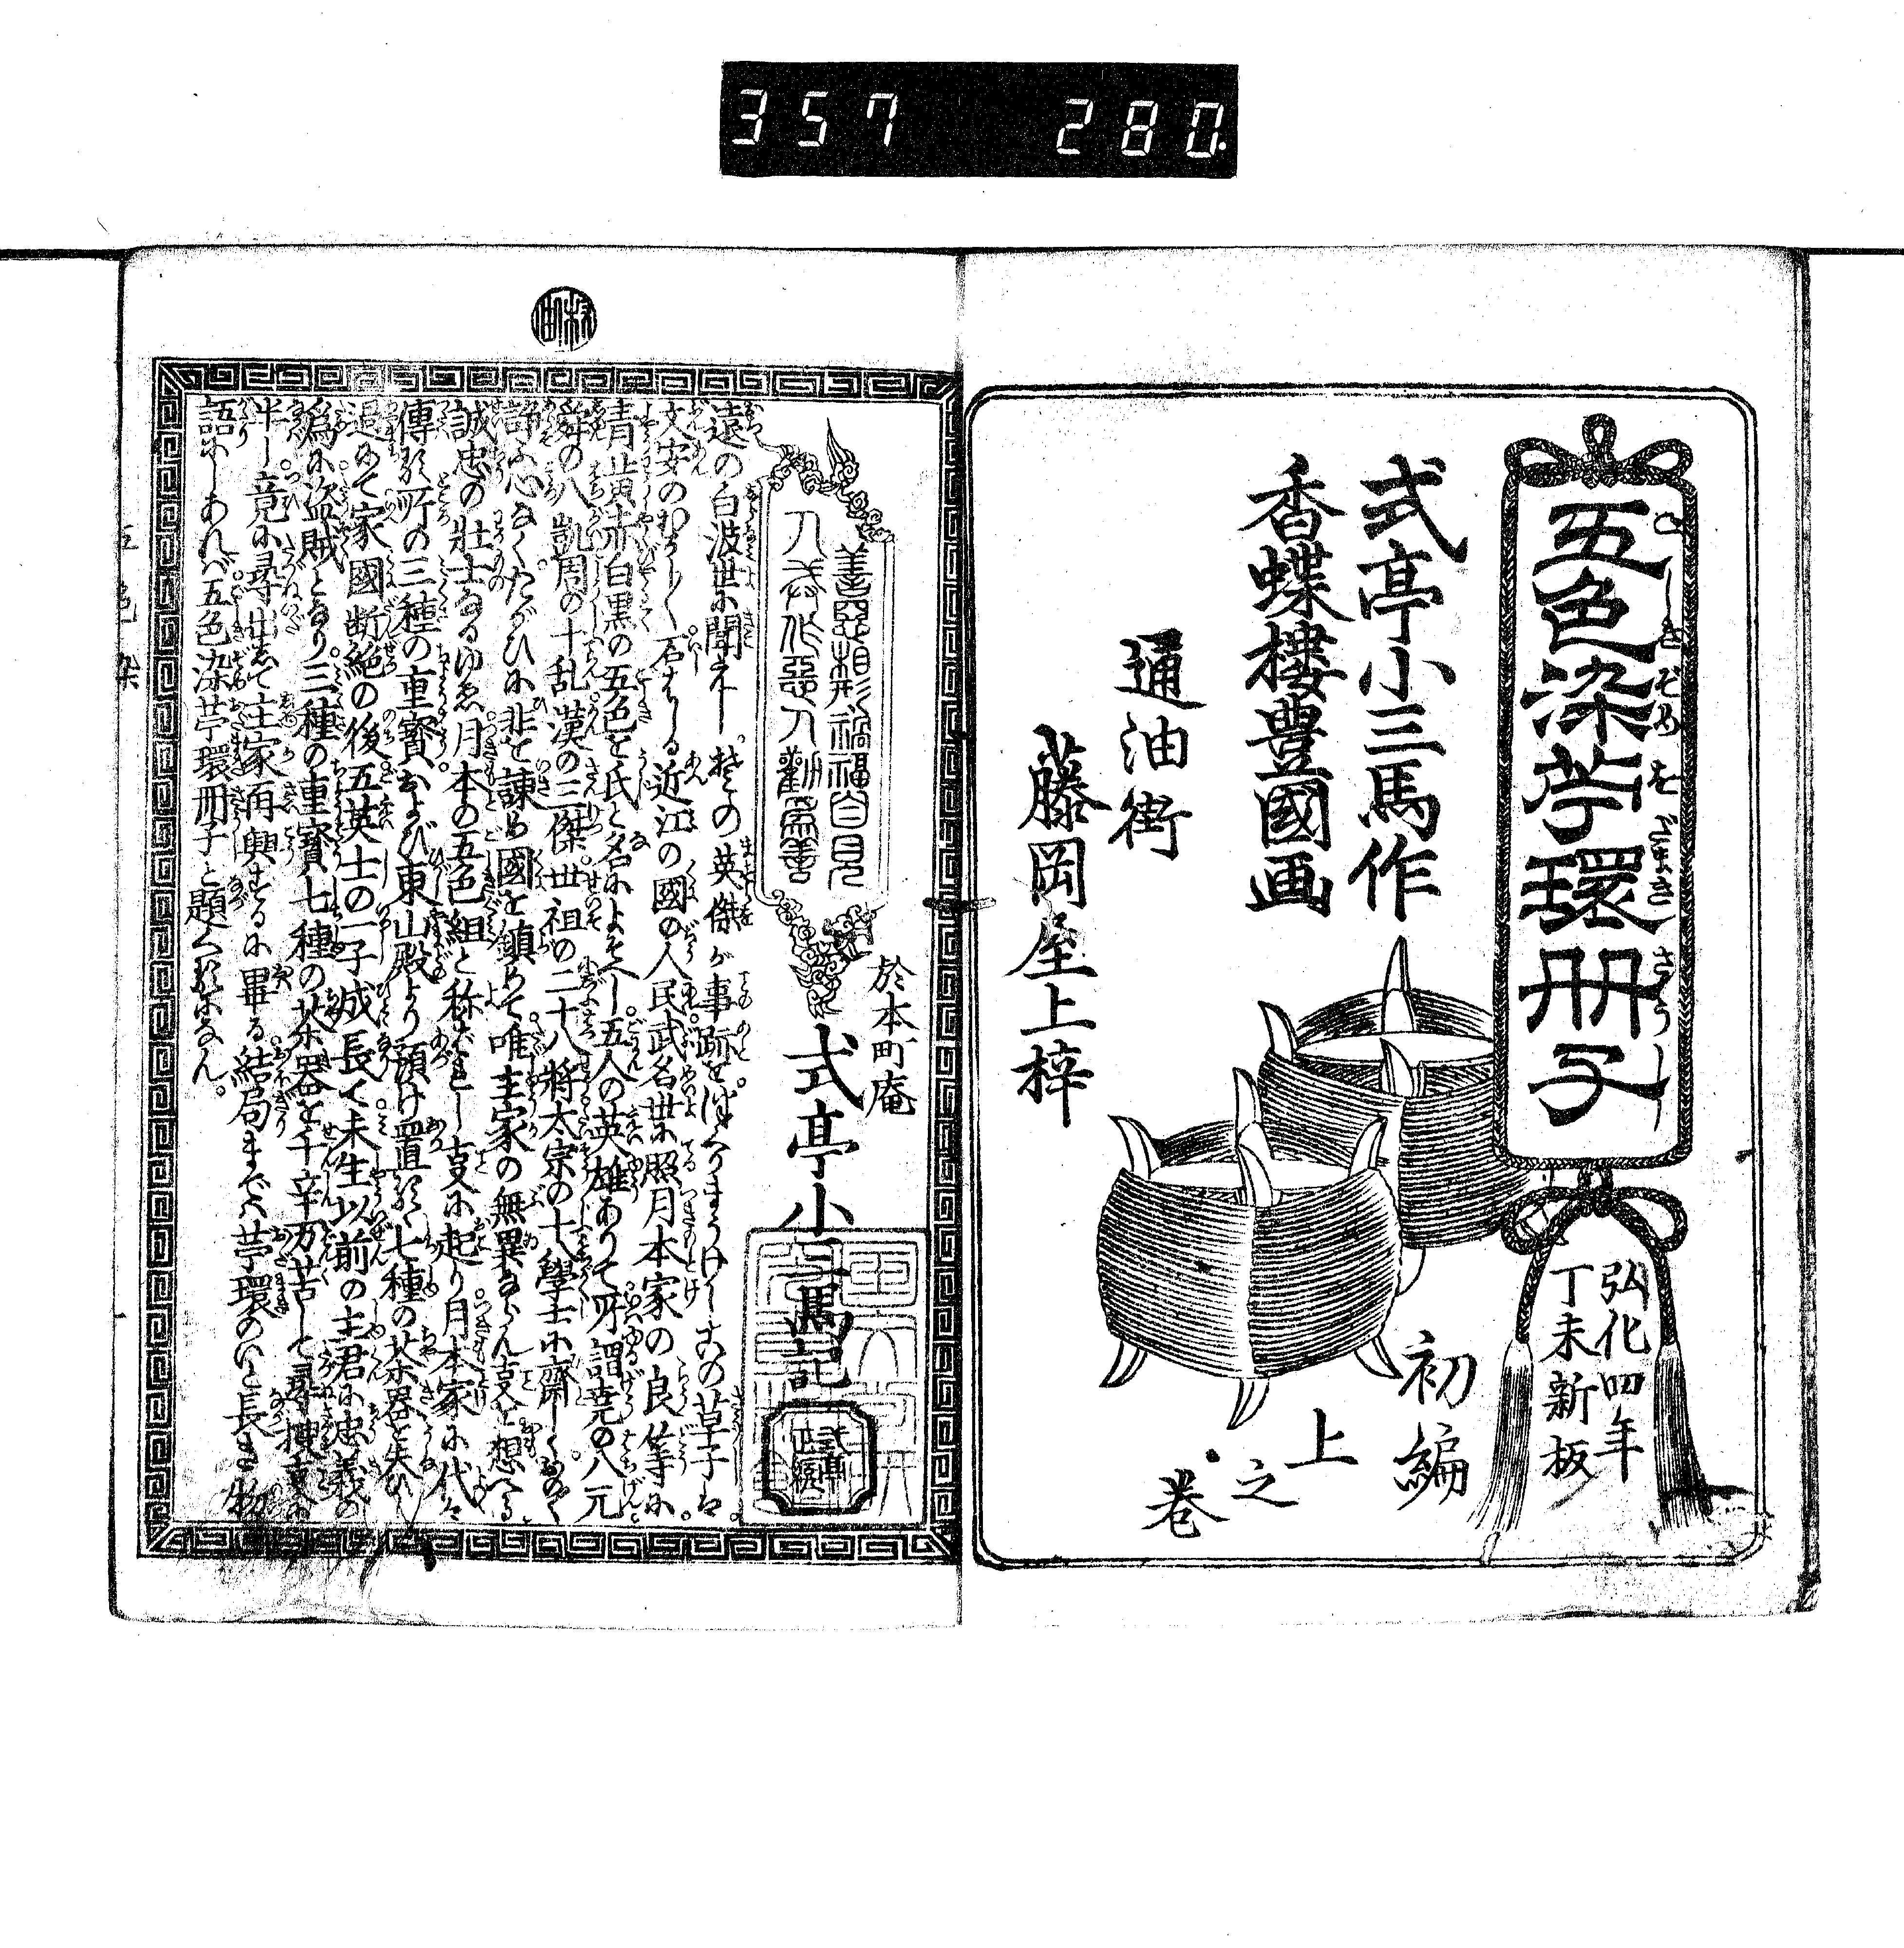 357 280
五色染苧環冊子
ごしきぞめをだまきさうし
式亭小三馬作
香蝶樓豊國画
通油街
藤岡屋上梓
弘化四年
丁未新板
初編
上之巻
於本町庵
式亭小三馬記
善惡相形禍福自見
遠の白波世に聞えし。
の英傑が事跡を。
の草子は。
文安のむかし〳〵。
近江の國の人民武名世に照月本家の良等に。
青黄赤白黒の五色を氏と名によそへし五人の英雄ありて所謂堯の八元
舜の八凱周の十乱漢の三傑。世祖の二十八将太宗の十八學士に齋しく
心なくたがひに非を諫め國を鎮めて唯主家の無異ならん叓を想へる
誠忠の壮士なるゆゑ月本の五色組と称だえし叓に起り月本家に代々
傳る所の三種の重寳および東山殿より預け置る七種の茶器を失ひ
家國断絶の後五英士の一子成長して未生以前の主君に忠義の
為に盗賊となり三種の重寳七種の茶器を千辛万苦して尋捜叓に
半し竟に尋出して主家再興するに畢る結局までは苧環のいと長き物
語にしあれば五色染苧環冊子と題へるになん。
五色染